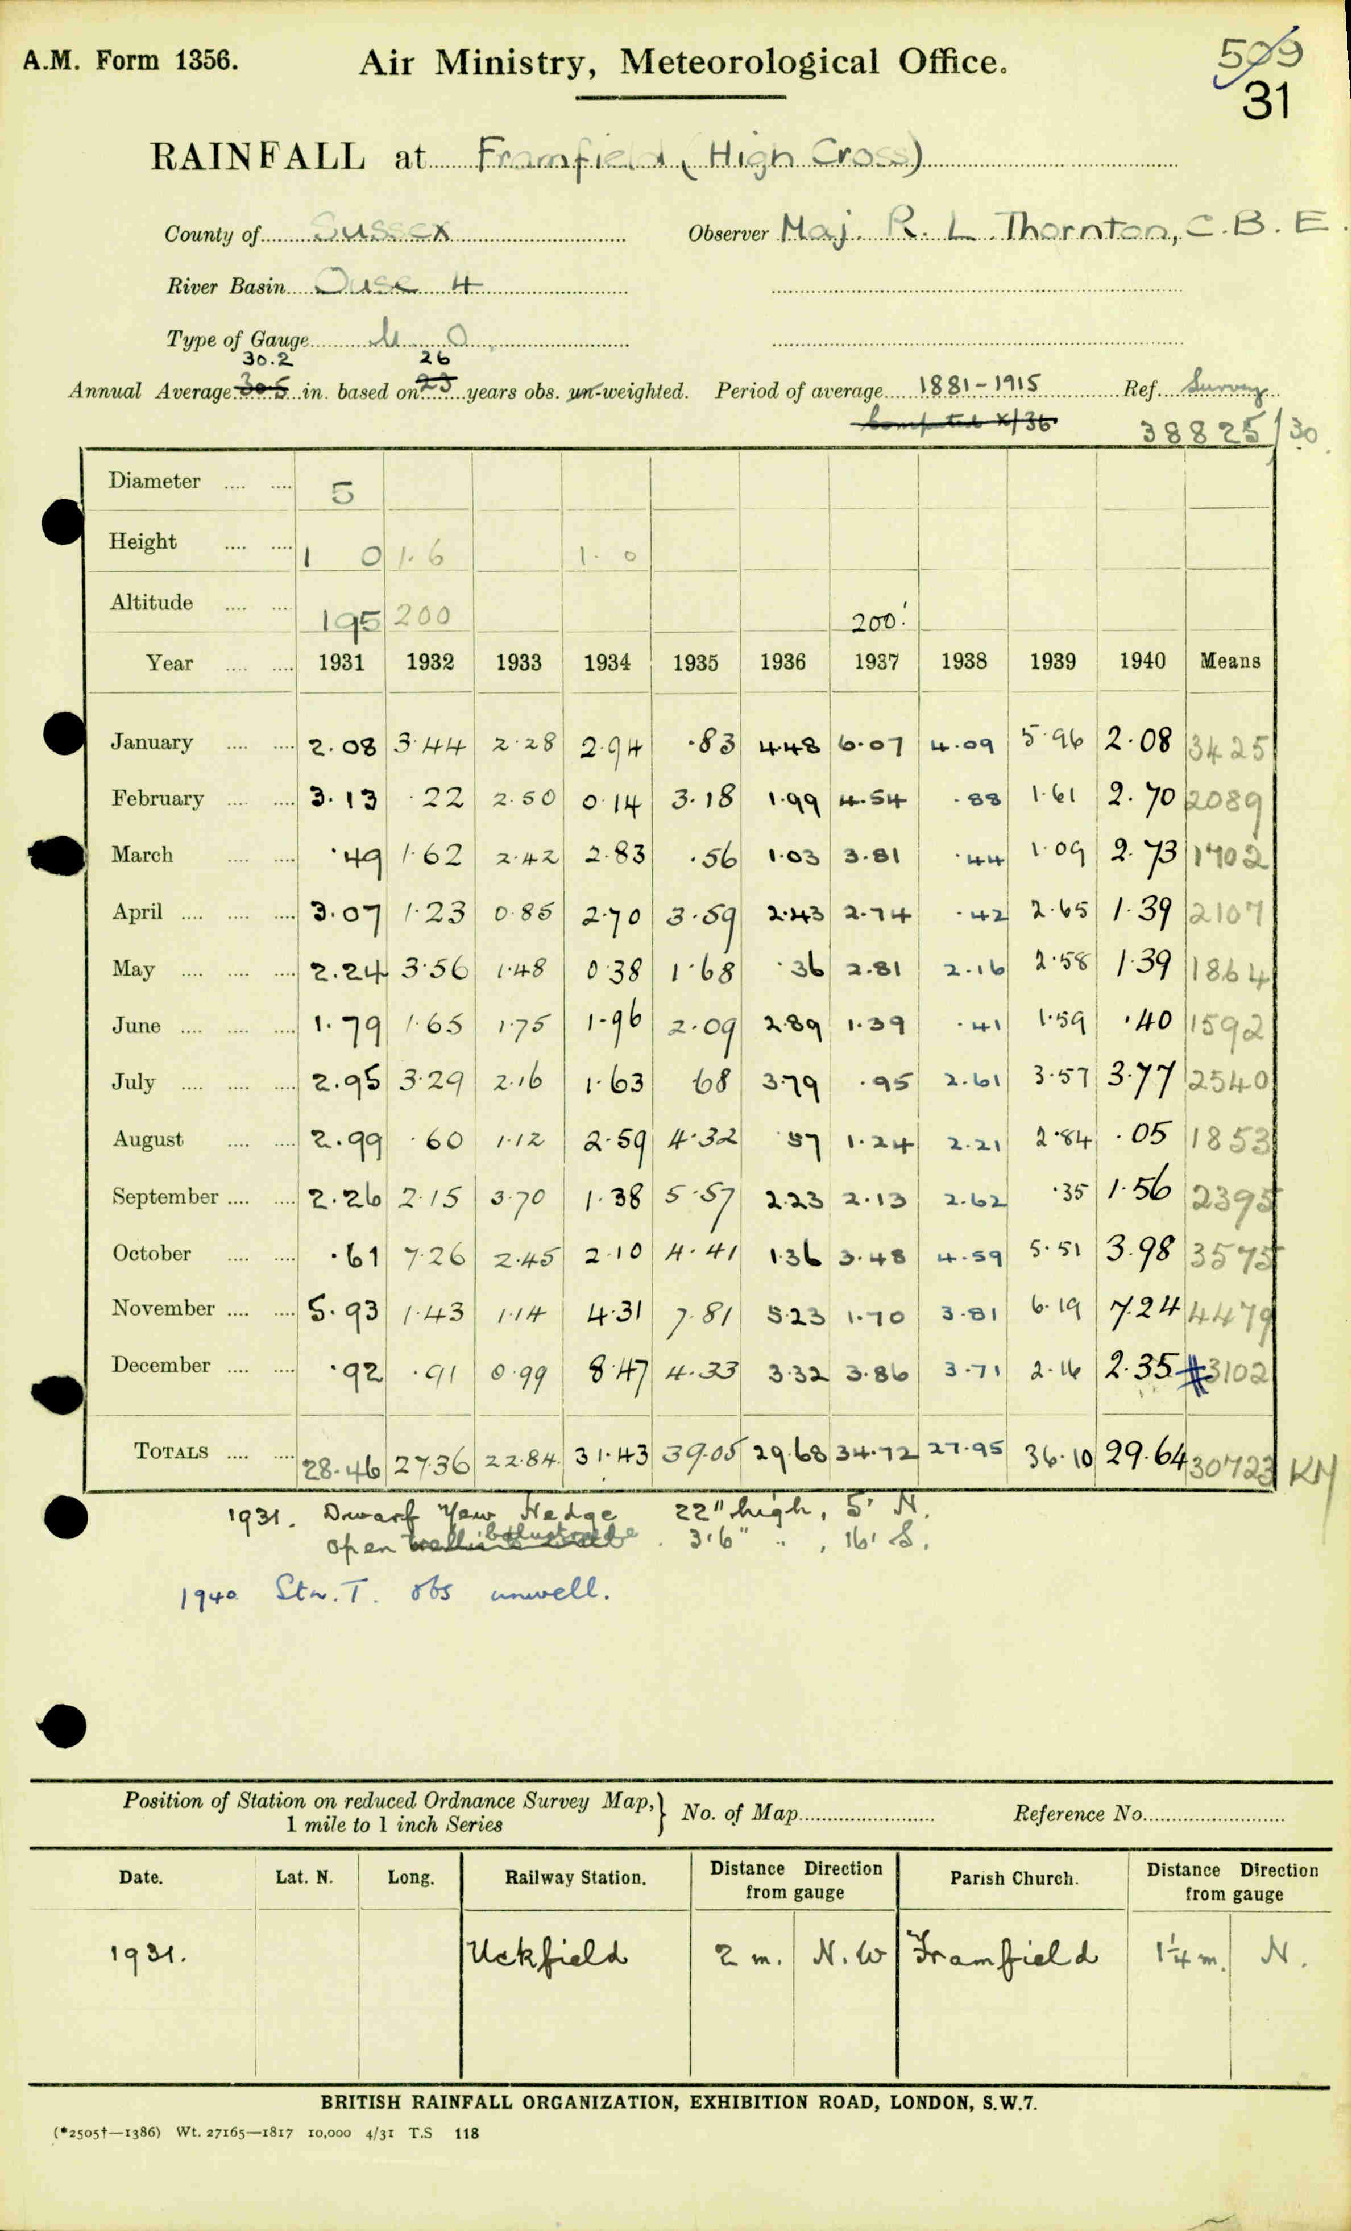 A.M. Form 1356. Air Ministry, Meteorological Office. 509
31
RAINFALL at Framfield (High Cross)
County of Sussex Observer Maj. R. L. Thornton, C.B.E.
River Basin Ouse 4
Type of Gauge M. O.
30.2 26
Annual Average 30.5 in. based on 23 years obs. un-weighted. Period of average 1881-1915 Ref. Survey
Computed X/36 38825/30
Diameter .... .... 5
Height .... .... 1 0 1.6 1.0
Altitude .... .... 195 200 200'
Year .... .... 1931 1932 1933 1934 1935 1936 1937 1938 1939 1940 Means
January .... .... 2.08 3.44 2.28 2.94 .83 4.48 6.07 4.09 5.96 2.08 3425
February .... .... 3.13 .22 2.50 0.14 3.18 1.99 4.54 .88 1.61 2.70 2089
March .... .... .49 1.62 2.42 2.83 .56 1.03 3.81 .44 1.09 2.73 1702
April .... .... .... 3.07 1.23 0.85 2.70 3.59 2.43 2.74 .42 2.65 1.39 2107
May .... .... .... 2.24 3.56 1.48 0.38 1.68 .36 2.81 2.16 2.58 1.39 1864
June .... .... .... 1.79 1.65 1.75 1.96 2.09 2.89 1.39 .41 1.59 .40 1592
July .... .... .... 2.95 3.29 2.16 1.63 68 3.79 .95 2.61 3.57 3.77 2540
August .... .... 2.99 .60 1.12 2.59 4.32 .57 1.24 2.21 2.84 .05 1853
September .... .... 2.26 2.15 3.70 1.38 5.57 2.23 2.13 2.62 .35 1.56 2395
October .... .... .61 7.26 2.45 2.10 4.41 1.36 3.48 4.59 5.51 3.98 3575
November .... .... 5.93 1.43 1.14 4.31 7.81 5.23 1.70 3.81 6.19 7.24 4479
December .... .... .92 .91 0.99 8.47 4.33 3.32 3.86 3.71 2.16 2.35 # 3102
TOTALS .... .... 28.46 27.36 22.84 31.43 39.05 29.68 34.72 27.95 36.10 29.64 30723 KM
1931. Dwarf Yew Hedge 22" high, 5' N.
open balustrade 3'6" " , 16' S.
1940 Stn. T. obs unwell.
Position of Station on reduced Ordnance Survey Map, } No. of Map Reference No.
1 mile to 1 inch Series
Date. Lat. N. Long. Railway Station. Distance Direction from gauge Parish Church. Distance Direction from gauge
1931. Uckfield 2 m. N.W Framfield 1¼ m. N.
BRITISH RAINFALL ORGANIZATION, EXHIBITION ROAD, LONDON, S.W.7.
(*2505†—1386) Wt. 27165—1817 10,000 4/31 T.S 118